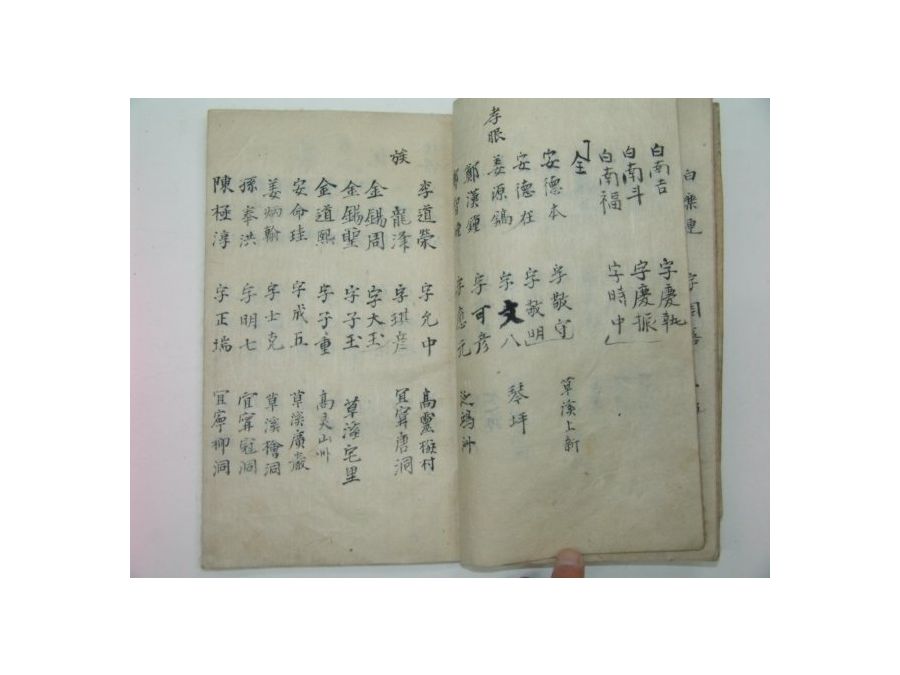 白南吉 字慶執
白南斗 字慶振
白南福 字時中
全
安德本 字敬守 草溪上新
安德在 字敬明
孝眼 姜源鎬 字文八 琴坪
鄭漢鍾 字可彦
字應元
李道榮 字允中 高靈 村
族 龍澤 字琪彦 宜寧唐洞
金錫周 字大玉
金錫聖 字子玉 草溪宅里
金道熙 字子重 高灵山州
安命珪 字成五 草溪廣嚴
姜炳翰 字士克 草溪檜洞
孫奉洪 字明七 宜寧冠洞
陳極淳 字正瑞 宜寧柳洞